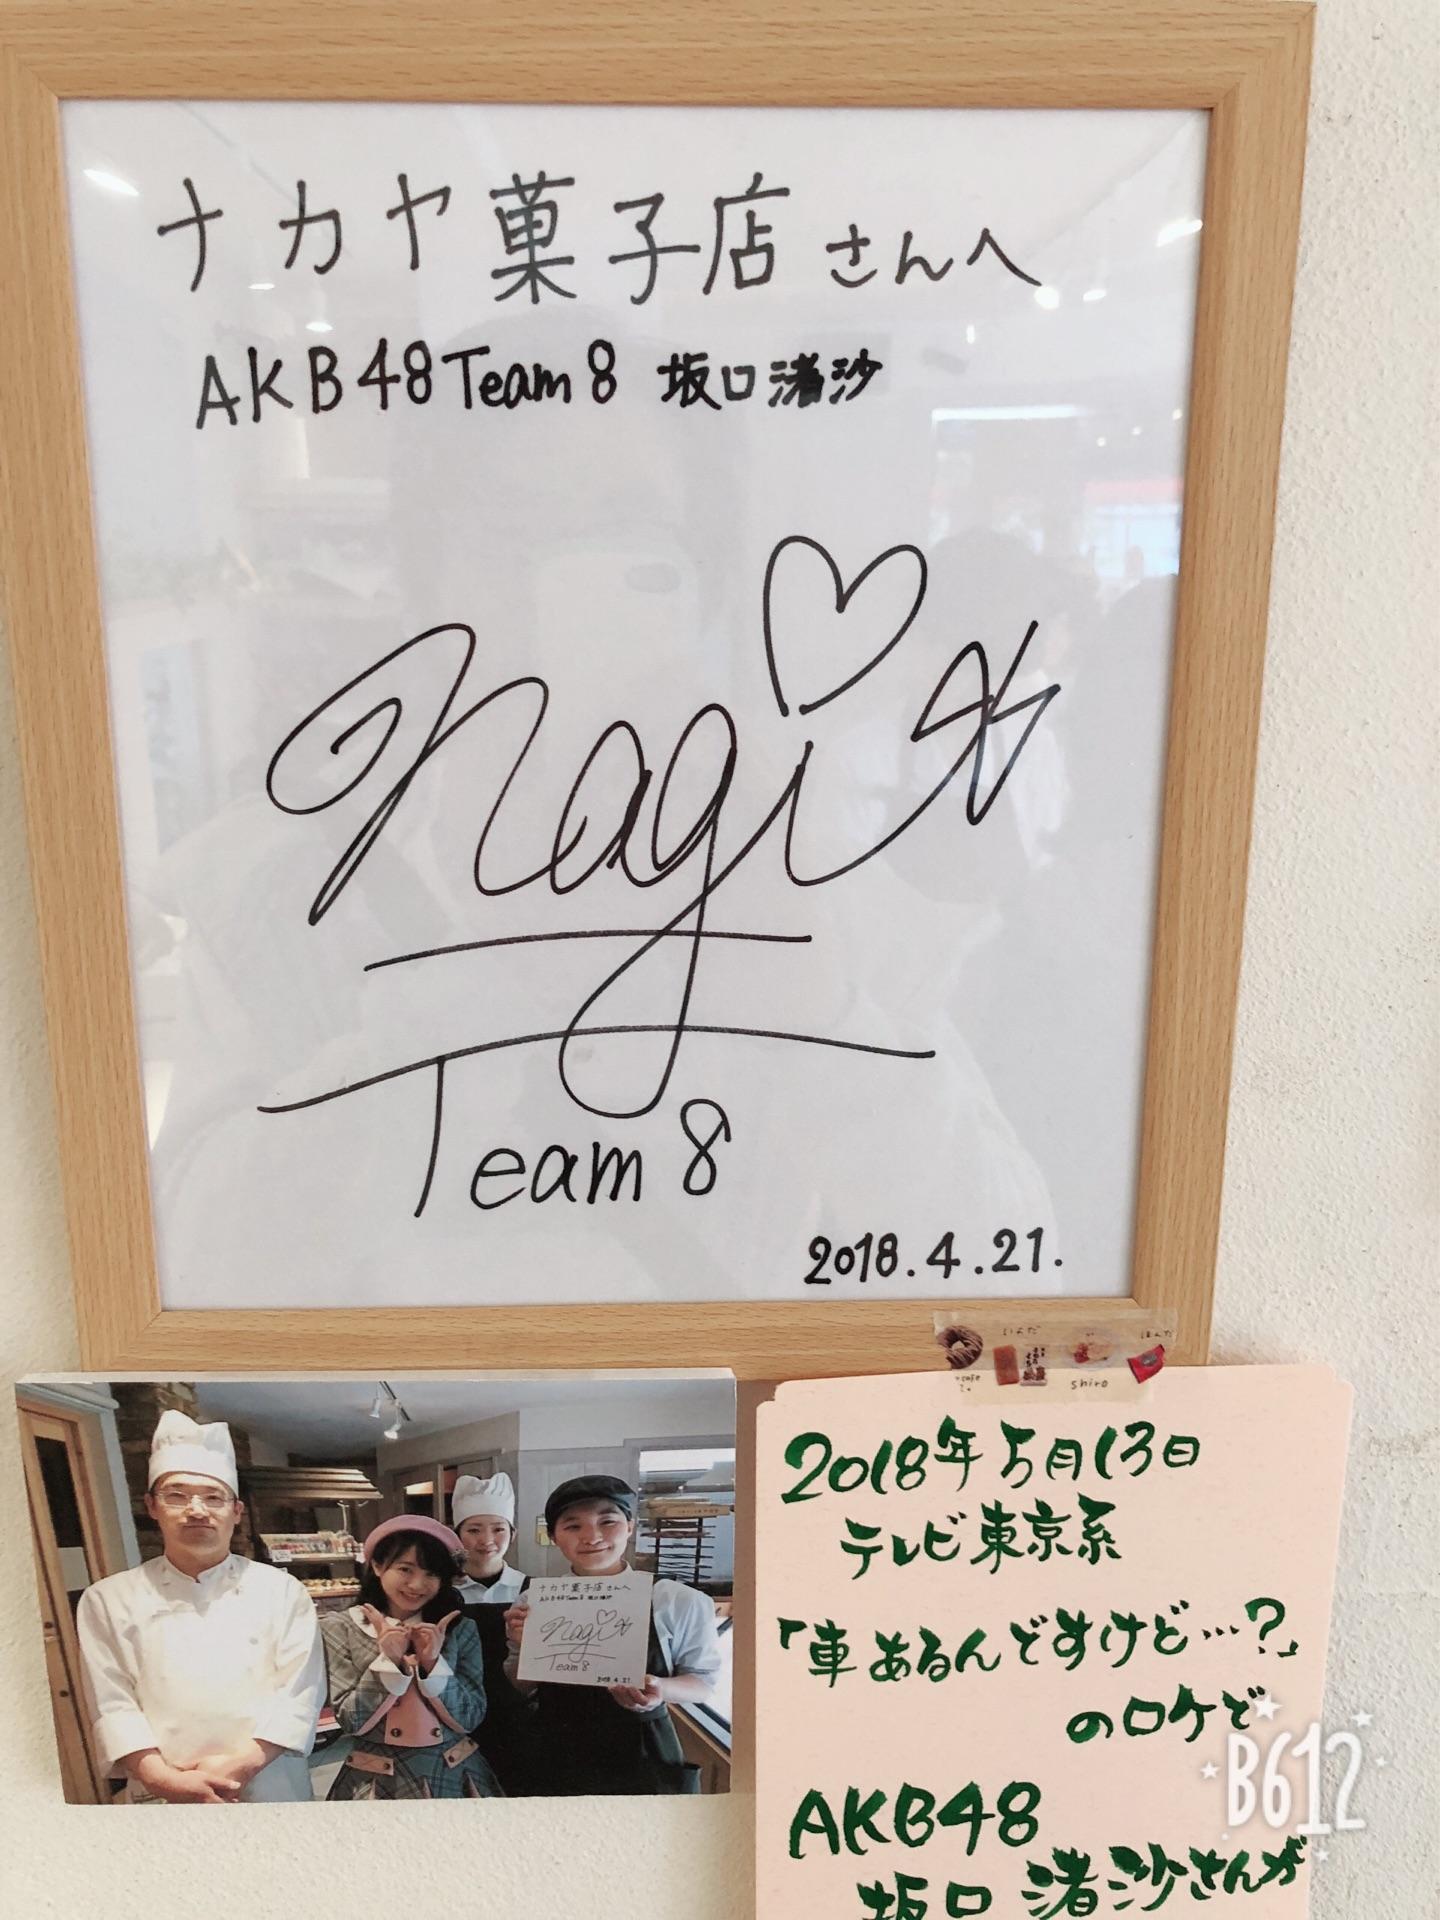 ナカヤ菓子店さんへ
AKB48 Team 8 坂口渚沙
Nagi
Team 8
2018.4.21.
いんだ
ほんだ
shiro
ナカヤ菓子店さんへ
AKB48 Team 8 坂口渚沙
Nagi
Team 8
2018.4.21.
2018年5月13日
テレビ東京系
「車あるんですけど…?」
のロケで
AKB48
坂口渚沙さんが
B612